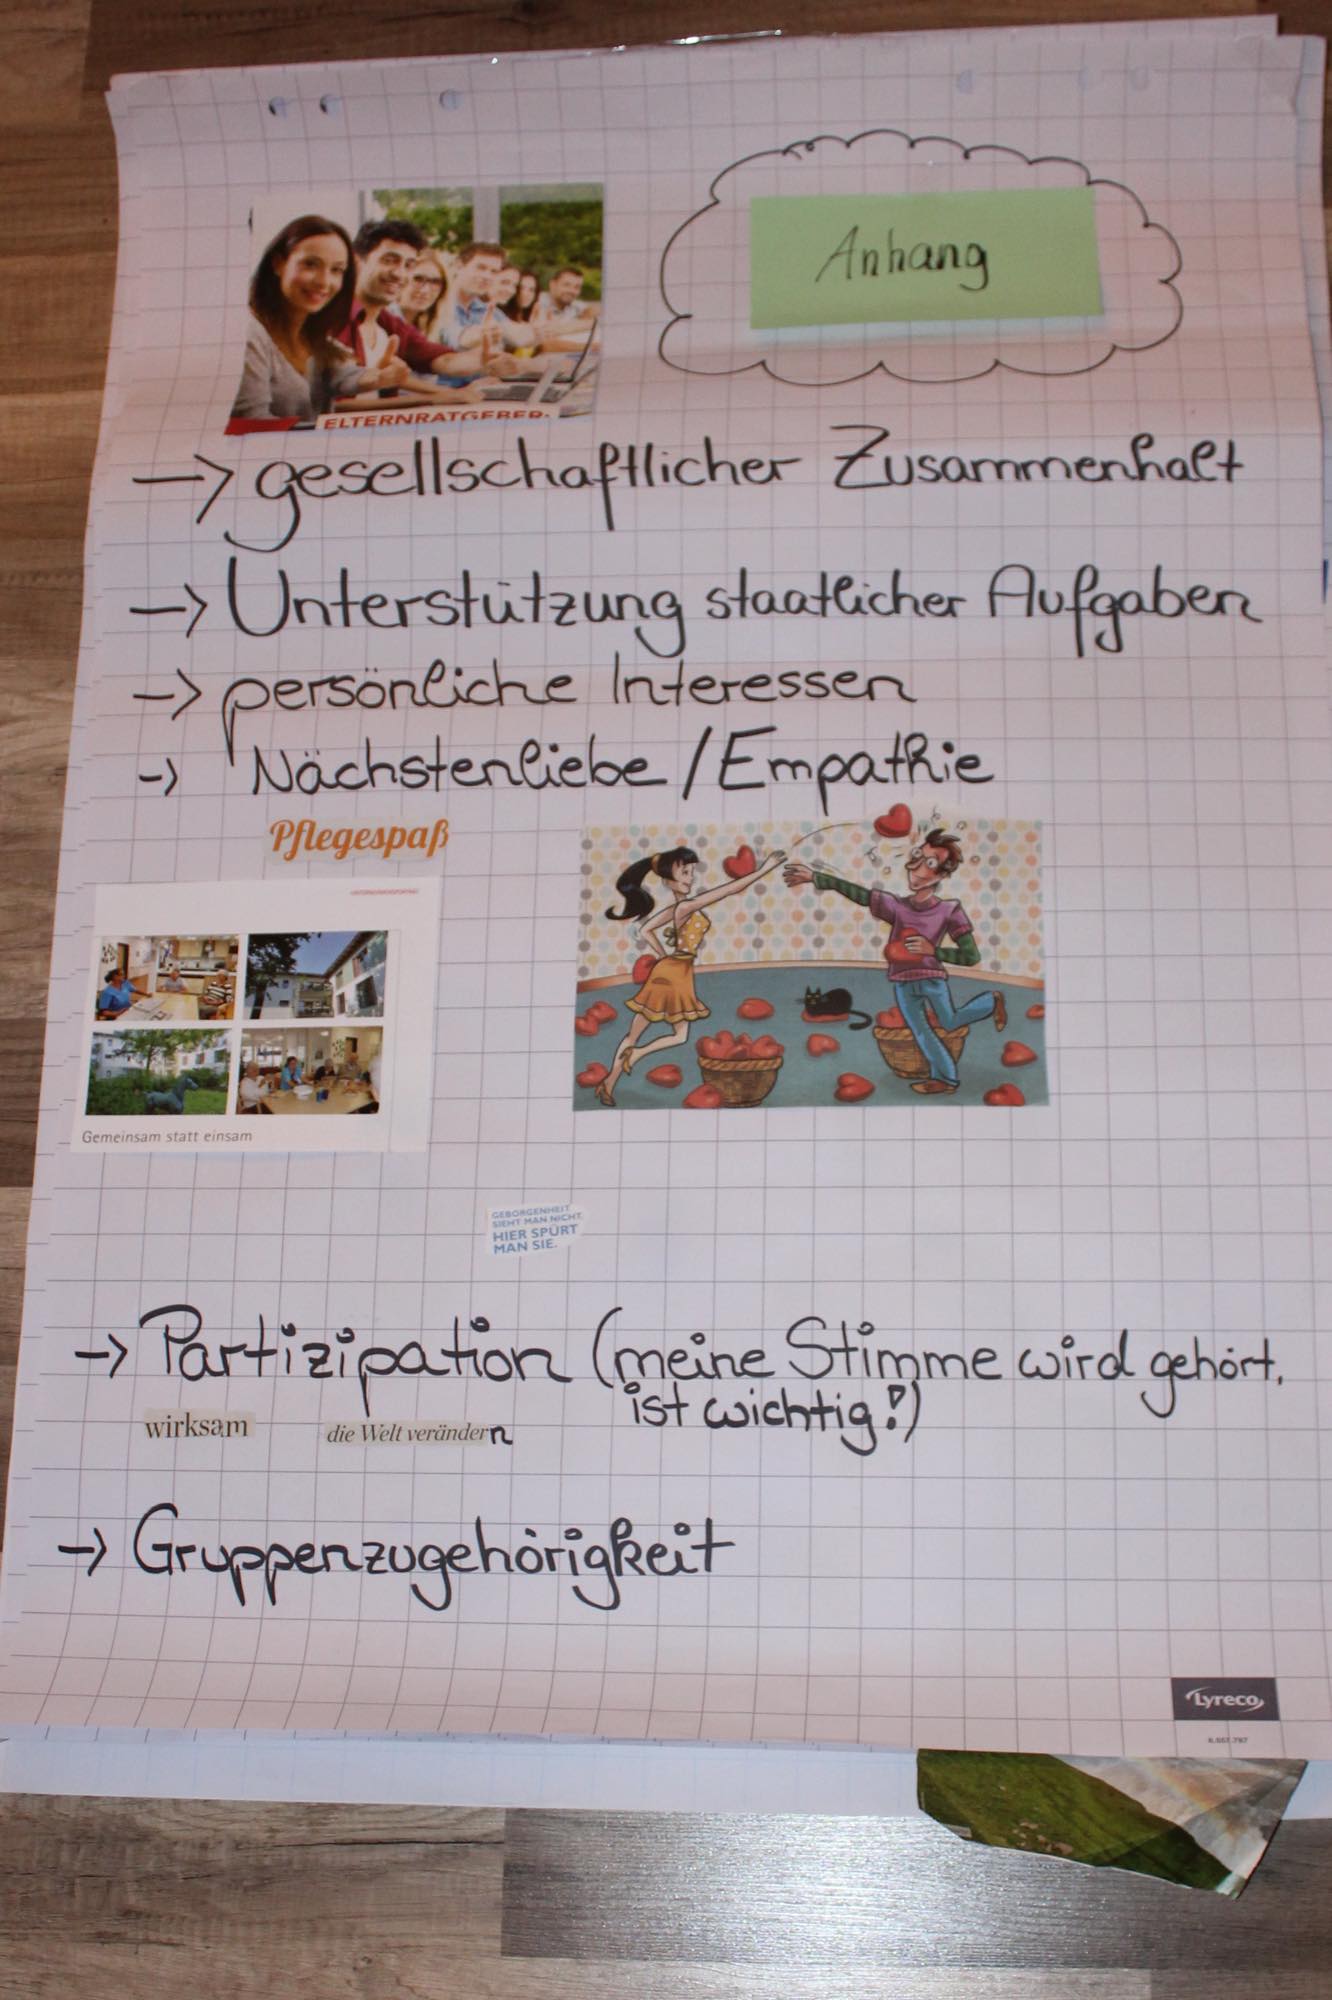 Anhang
ELTERNRATGEBER
-> gesellschaftlicher Zusammenhalt
-> Unterstützung staatlicher Aufgaben
-> persönliche Interessen
-> Nächstenliebe / Empathie
Pflegespaß
Gemeinsam statt einsam
GEBORGENHEIT
SIEHT MAN NICHT.
HIER SPÜRT
MAN SIE.
-> Partizipation (meine Stimme wird gehört,
ist wichtig!)
wirksam die Welt verändern
-> Gruppenzugehörigkeit
Lyreco